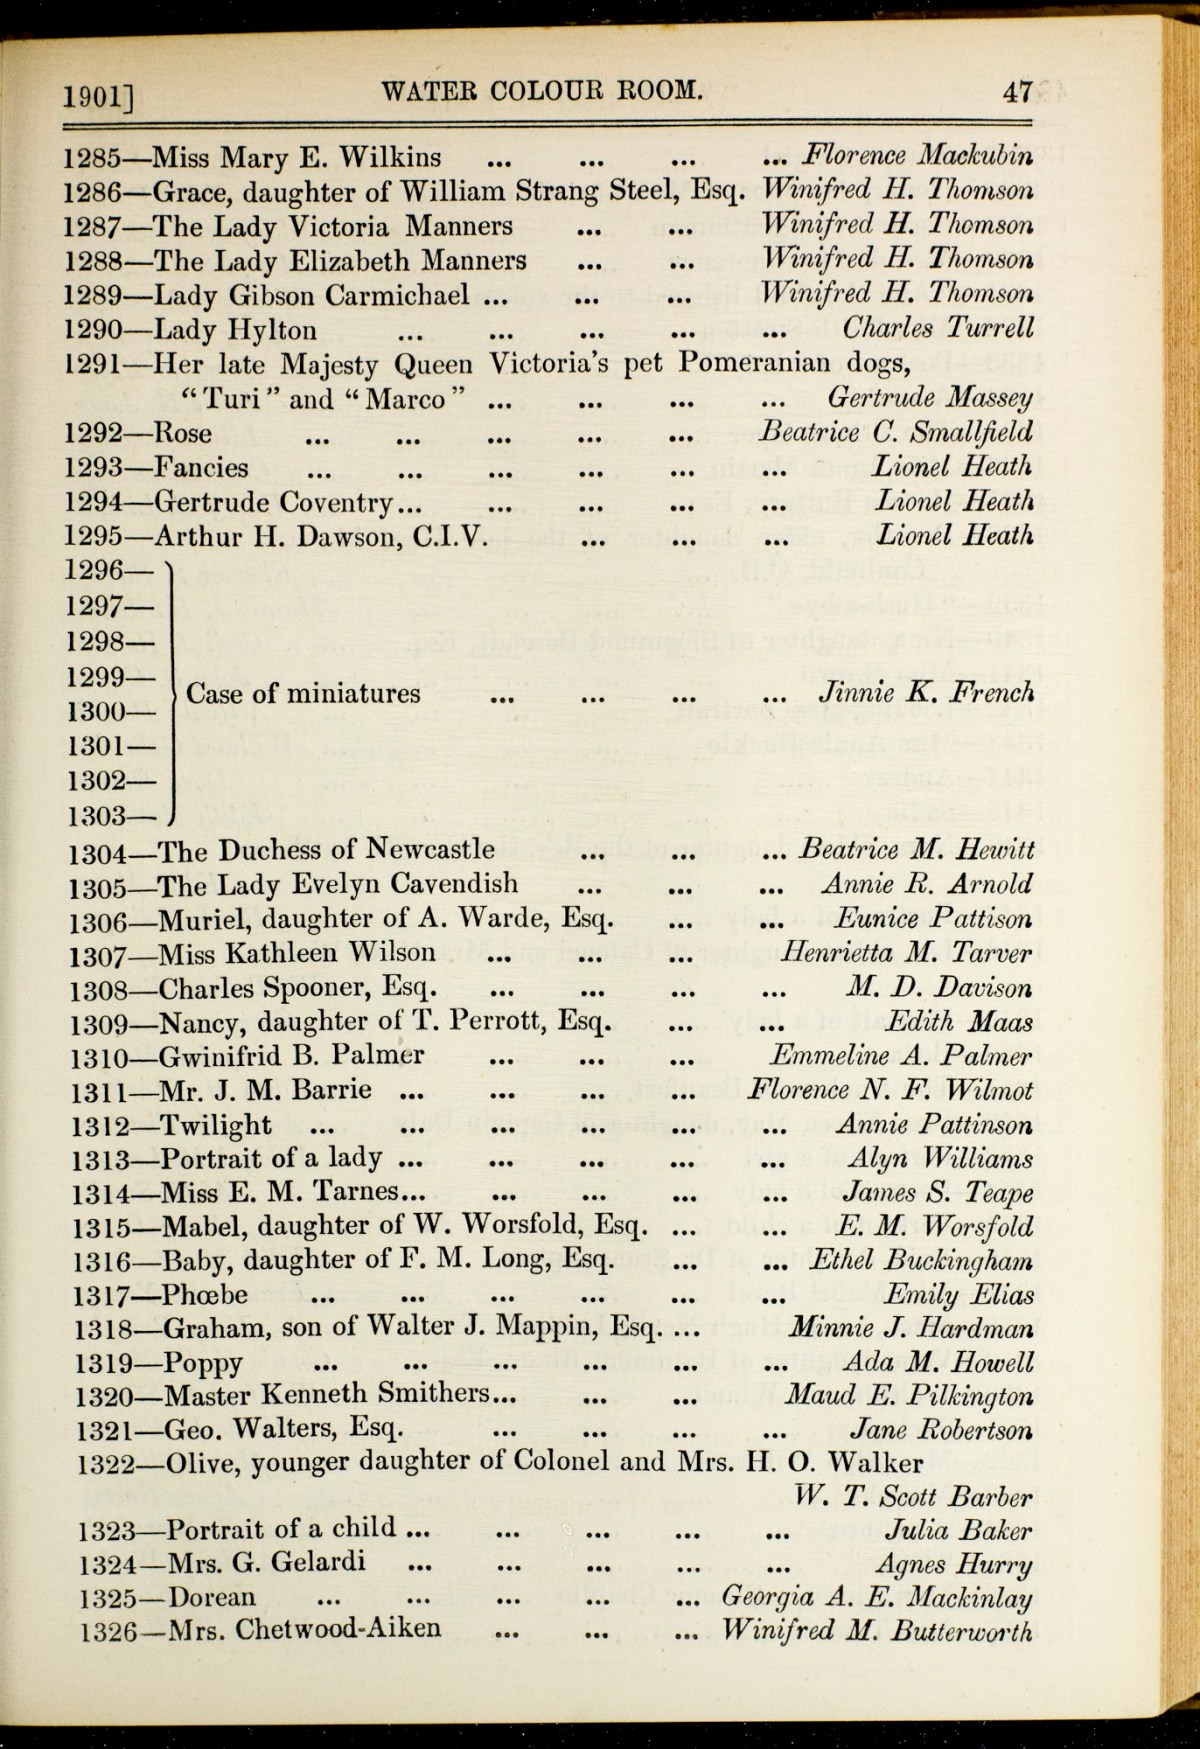 1901] WATER COLOUR ROOM. 47
1285—Miss Mary E. Wilkins ... ... ... ... Florence Mackubin
1286—Grace, daughter of William Strang Steel, Esq. Winifred H. Thomson
1287—The Lady Victoria Manners ... ... Winifred H. Thomson
1288—The Lady Elizabeth Manners ... ... Winifred H. Thomson
1289—Lady Gibson Carmichael ... ... ... Winifred H. Thomson
1290—Lady Hylton ... ... ... ... ... Charles Turrell
1291—Her late Majesty Queen Victoria's pet Pomeranian dogs,
"Turi" and "Marco" ... ... ... ... Gertrude Massey
1292—Rose ... ... ... ... ... Beatrice C. Smallfield
1293—Fancies ... ... ... ... ... ... Lionel Heath
1294—Gertrude Coventry... ... ... ... ... Lionel Heath
1295—Arthur H. Dawson, C.I.V. ... ... ... Lionel Heath
1296—
1297—
1298—
1299—
Case of miniatures ... ... ... ... Jinnie K. French
1300—
1301—
1302—
1303—
1304—The Duchess of Newcastle ... ... ... Beatrice M. Hewitt
1305—The Lady Evelyn Cavendish ... ... ... Annie R. Arnold
1306—Muriel, daughter of A. Warde, Esq. ... ... Eunice Pattison
1307—Miss Kathleen Wilson ... ... ... Henrietta M. Tarver
1308—Charles Spooner, Esq. ... ... ... ... M. D. Davison
1309—Nancy, daughter of T. Perrott, Esq. ... ... Edith Maas
1310—Gwinifrid B. Palmer ... ... ... Emmeline A. Palmer
1311—Mr. J. M. Barrie ... ... ... ... Florence N. F. Wilmot
1312—Twilight ... ... ... ... ... ... Annie Pattinson
1313—Portrait of a lady ... ... ... ... ... Alyn Williams
1314—Miss E. M. Tarnes... ... ... ... ... James S. Teape
1315—Mabel, daughter of W. Worsfold, Esq. ... ... E. M. Worsfold
1316—Baby, daughter of F. M. Long, Esq. ... ... Ethel Buckingham
1317—Phœbe ... ... ... ... ... ... Emily Elias
1318—Graham, son of Walter J. Mappin, Esq. ... Minnie J. Hardman
1319—Poppy ... ... ... ... ... ... Ada M. Howell
1320—Master Kenneth Smithers... ... ... Maud E. Pilkington
1321—Geo. Walters, Esq. ... ... ... ... Jane Robertson
1322—Olive, younger daughter of Colonel and Mrs. H. O. Walker
W. T. Scott Barber
1323—Portrait of a child ... ... ... ... ... Julia Baker
1324—Mrs. G. Gelardi ... ... ... ... ... Agnes Hurry
1325—Dorean ... ... ... ... ... Georgia A. E. Mackinlay
1326—Mrs. Chetwood-Aiken ... ... ... Winifred M. Butterworth